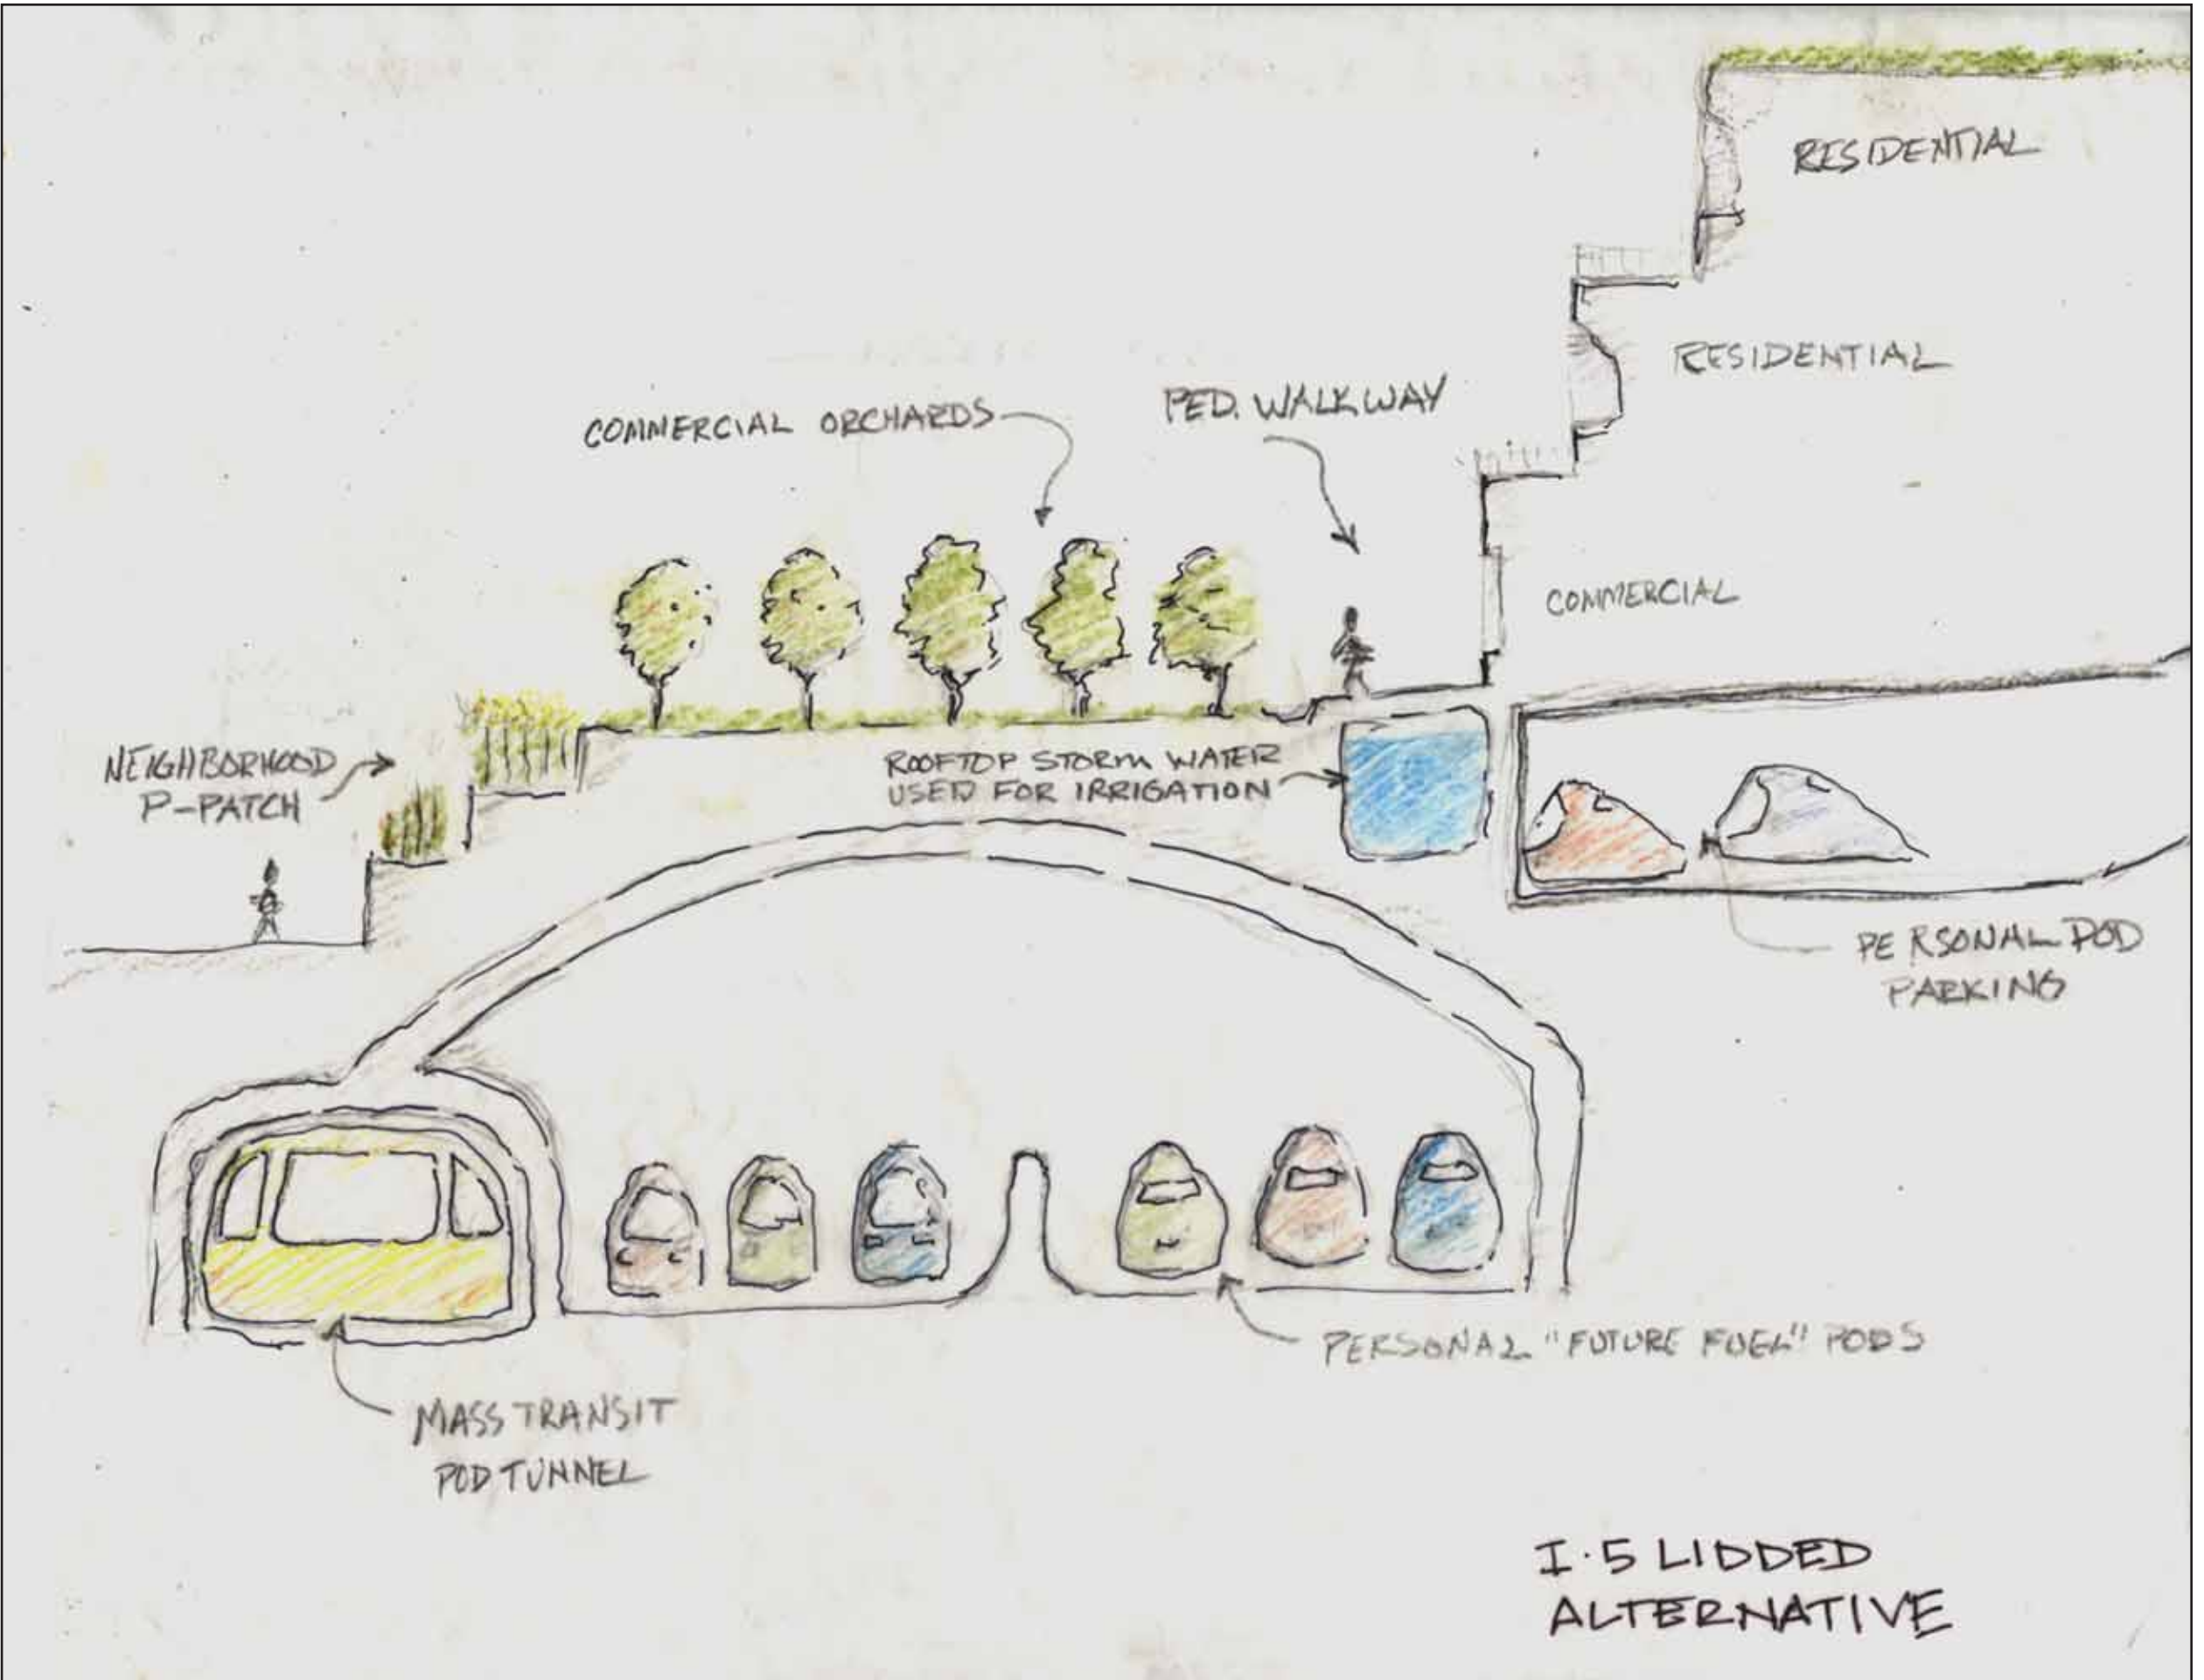 RESIDENTIAL
RESIDENTIAL
COMMERCIAL ORCHARDS
PED. WALKWAY
COMMERCIAL
NEIGHBORHOOD
P-PATCH
ROOFTOP STORM WATER
USED FOR IRRIGATION
PERSONAL POD
PARKING
PERSONAL "FUTURE FUEL" PODS
MASS TRANSIT
POD TUNNEL
I-5 LIDDED
ALTERNATIVE